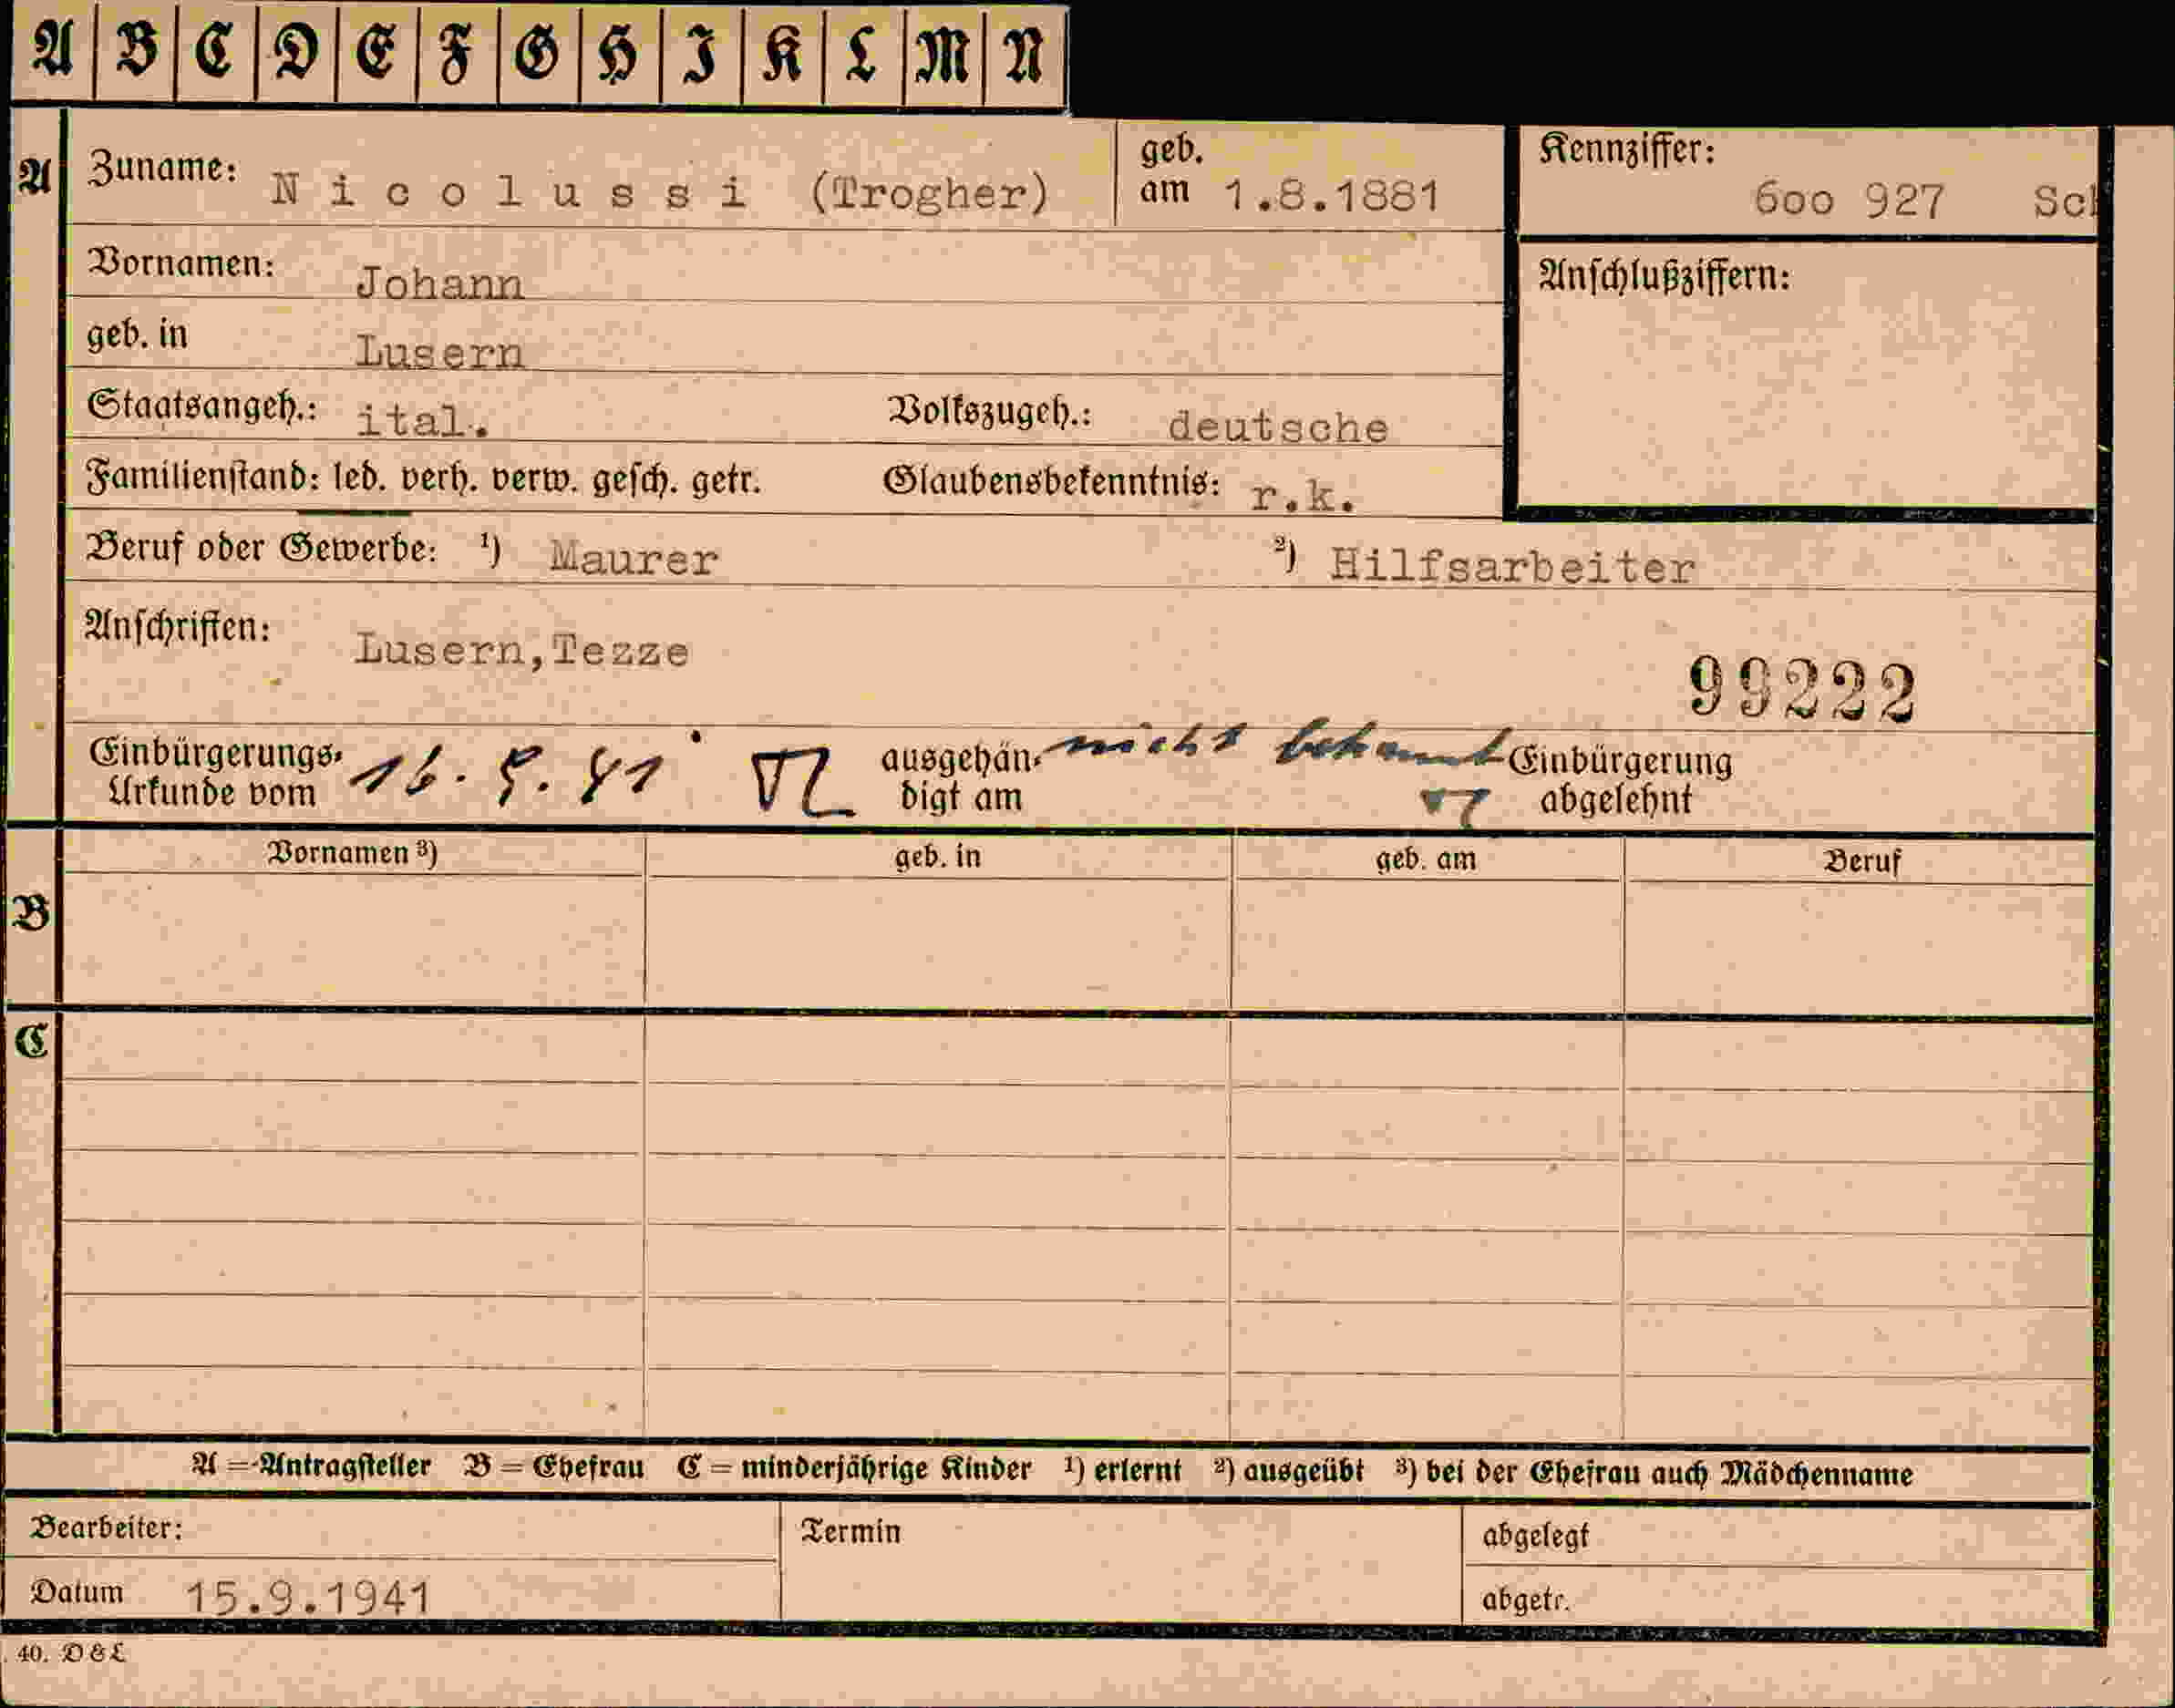 A B C D E F G H I K L M N
A Zuname: Nicolussi (Trogher) geb. am 1.8.1881 Kennziffer: 600 927 Sch
Vornamen: Johann Anschlußziffern:
geb. in Lusern
Staatsangeh.: ital. Volkszugeh.: deutsche
Familienstand: led. verh. verw. gesch. getr. Glaubensbekenntnis: r.k.
Beruf oder Gewerbe: ¹) Maurer ²) Hilfsarbeiter
Anschriften: Lusern,Tezze
99222
Einbürgerungs- Urkunde vom 16. 9. 41 ausgehän- digt am nicht bekannt Einbürgerung abgelehnt
Vornamen ³) geb. in geb. am Beruf
B
C
A = Antragsteller B = Ehefrau C = minderjährige Kinder ¹) erlernt ²) ausgeübt ³) bei der Ehefrau auch Mädchenname
Bearbeiter: Termin abgelegt
Datum 15.9.1941 abgetr.
40. D & L